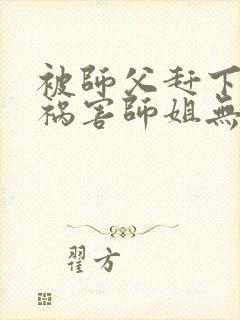 被師父赶下
祸害師姐無
翟方